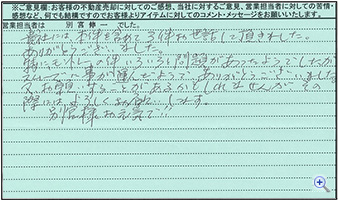 ※ご意見欄:お客様の不動産売却に対してのご感想、当社に対するご意見、営業担当者に対しての苦情・
感想など、何でも結構ですのでお客様よりアイテムに対してのコメント・メッセージをお願いいたします。
営業担当者は 別宮修一 でした。
貴社には本件を含めて3件お世話して頂きました。
ありがとうございました。
特に の件いろいろ問題があったようでしたが
スムーズに事が運んだようで、ありがとうございました。
又お願いすることがあるかもしれませんが、その
際にはよろしくお願いします。
別宮様お元気で!!